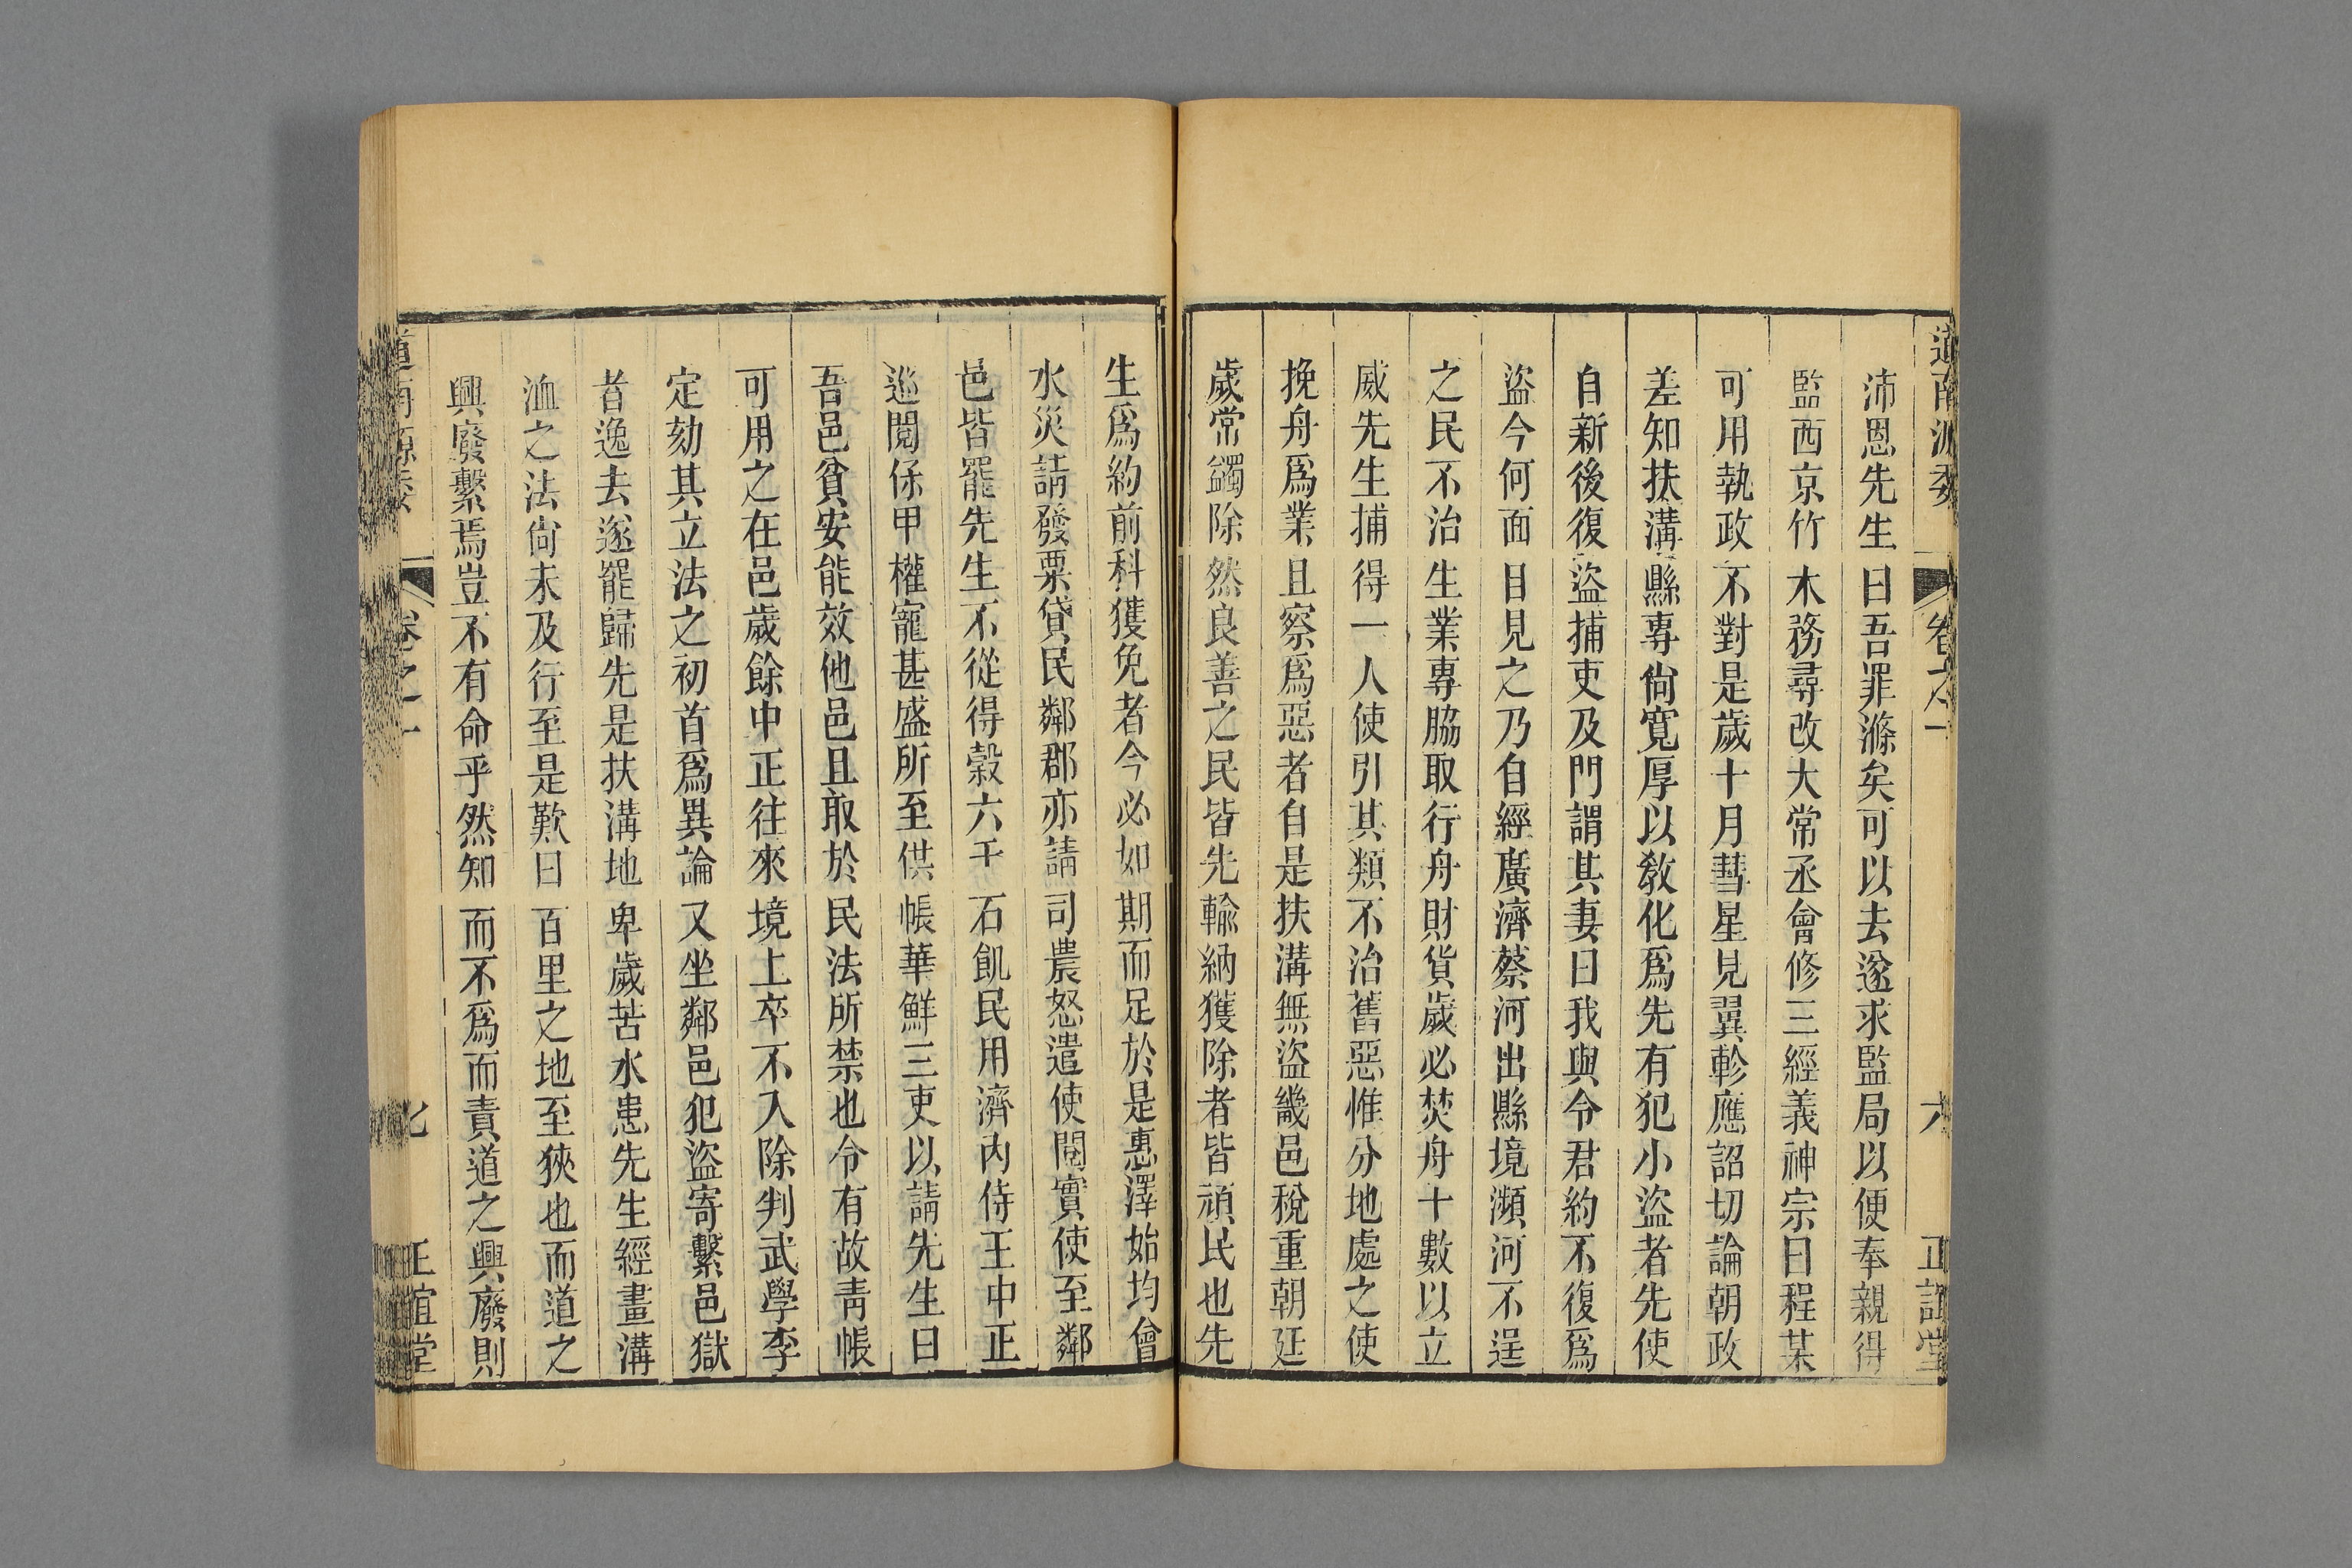 道南源委 卷之一 六 正誼堂
沛恩先生曰吾罪滌矣可以去遂求監局以便奉親得
監西京竹木務尋改大常丞會修三經義神宗曰程某
可用執政不對是歲十月彗星見翼軫應詔切論朝政
差知扶溝縣專尙寬厚以敎化爲先有犯小盜者先使
自新後復盜捕吏及門謂其妻曰我與令君約不復爲
盜今何面目見之乃自經廣濟蔡河出縣境瀕河不逞
之民不治生業專脇取行舟財貨歲必焚舟十數以立
威先生捕得一人使引其類不治舊惡惟分地處之使
挽舟爲業且察爲惡者自是扶溝無盜畿邑稅重朝廷
歲常蠲除然良善之民皆先輸納獲除者皆頑民也先
生爲約前科獲免者今必如期而足於是惠澤始均會
水災請發粟貸民鄰郡亦請司農怒遣使閱實使至鄰
邑皆罷先生不從得穀六千石飢民用濟內侍王中正
巡閱保甲權寵甚盛所至供帳華鮮三吏以請先生曰
吾邑貧安能效他邑且取於民法所禁也令有故靑帳
可用之在邑歲餘中正往來境上卒不入除判武學李
定劾其立法之初首爲異論又坐鄰邑犯盜寄繫邑獄
者逸去遂罷歸先是扶溝地卑歲苦水患先生經畫溝
洫之法尙未及行至是歎曰百里之地至狹也而道之
興廢繫焉豈不有命乎然知而不爲而責道之興廢則
道南源委 卷之一 正誼堂